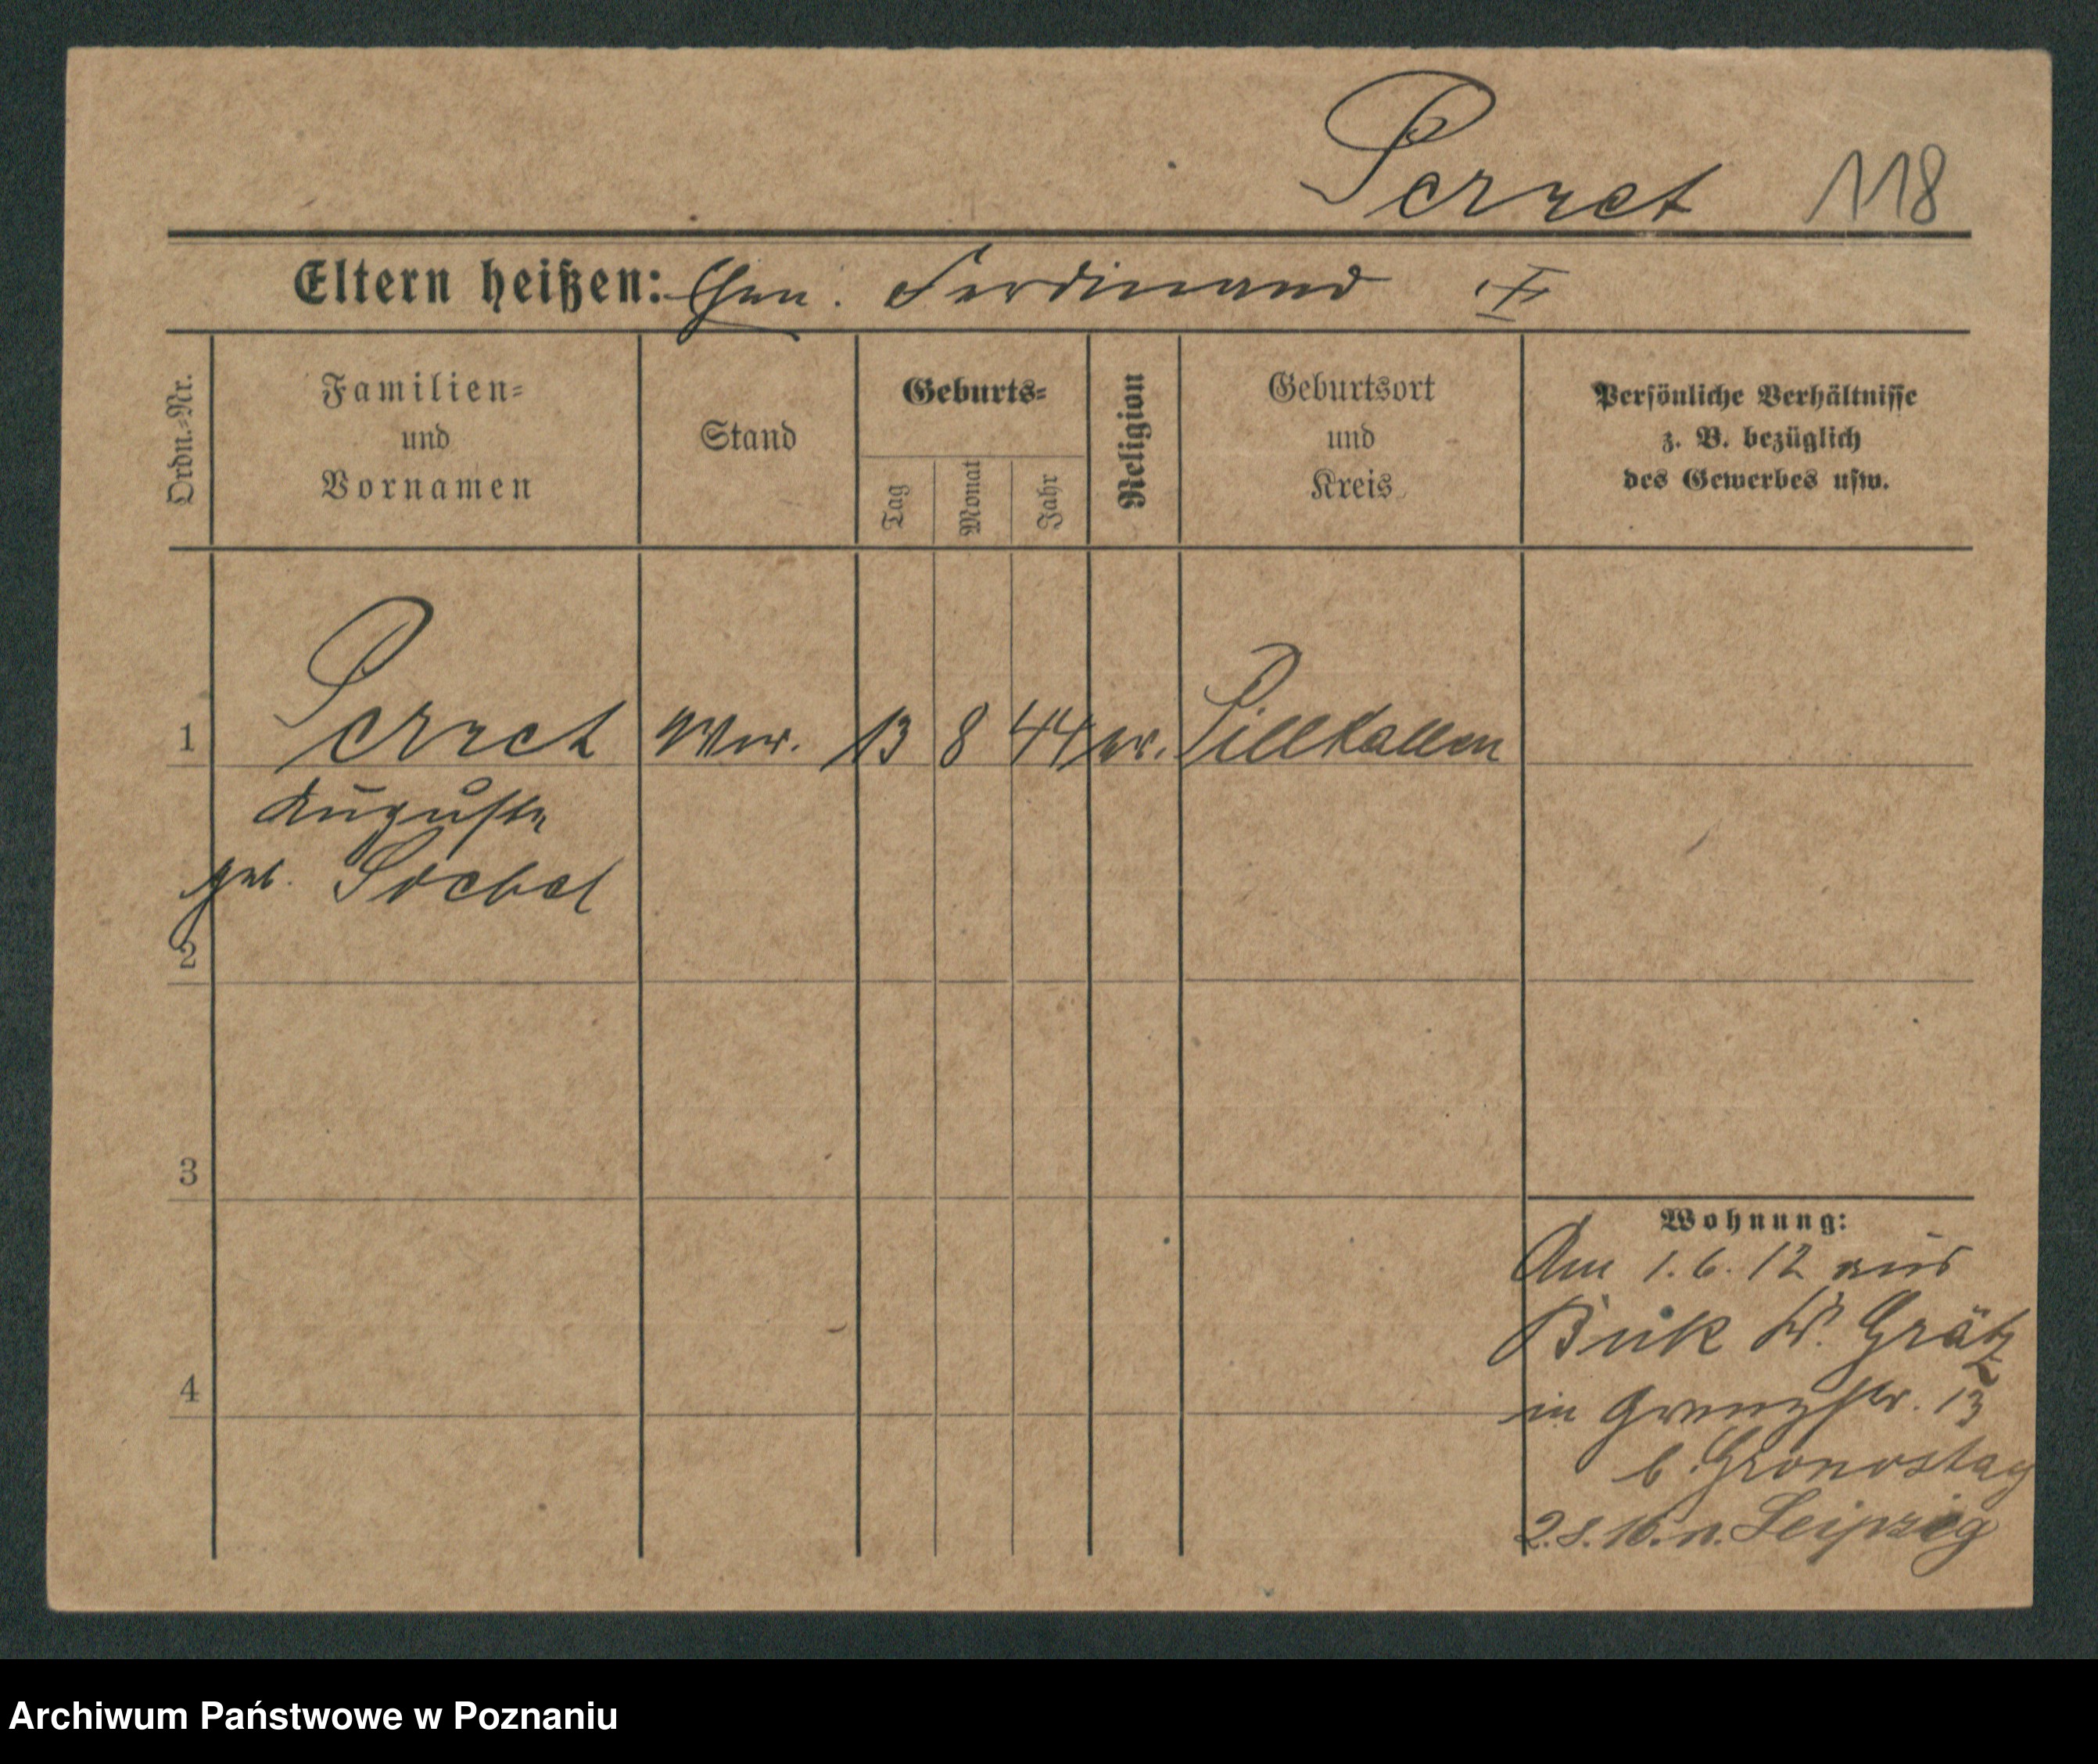 Perret 118
Eltern heißen: Ehem. Ferdinand
Ordn.=Nr.
Familien=
und
Vornamen
Stand
Geburts=
Tag
Monat
Jahr
Religion
Geburtsort
und
Kreis
Persönliche Verhältnisse
z. B. bezüglich
des Gewerbes usw.
1 Perret Wwe. 13 8 44 ev. Pillkallen
Auguste
geb. Goebel
2
3
4
Wohnung:
Am 1.6.12 aus
Buk Kr. Grätz
in Grenzstr. 13
b. Gronostay
2.8.16. n. Leipzig
Archiwum Państwowe w Poznaniu